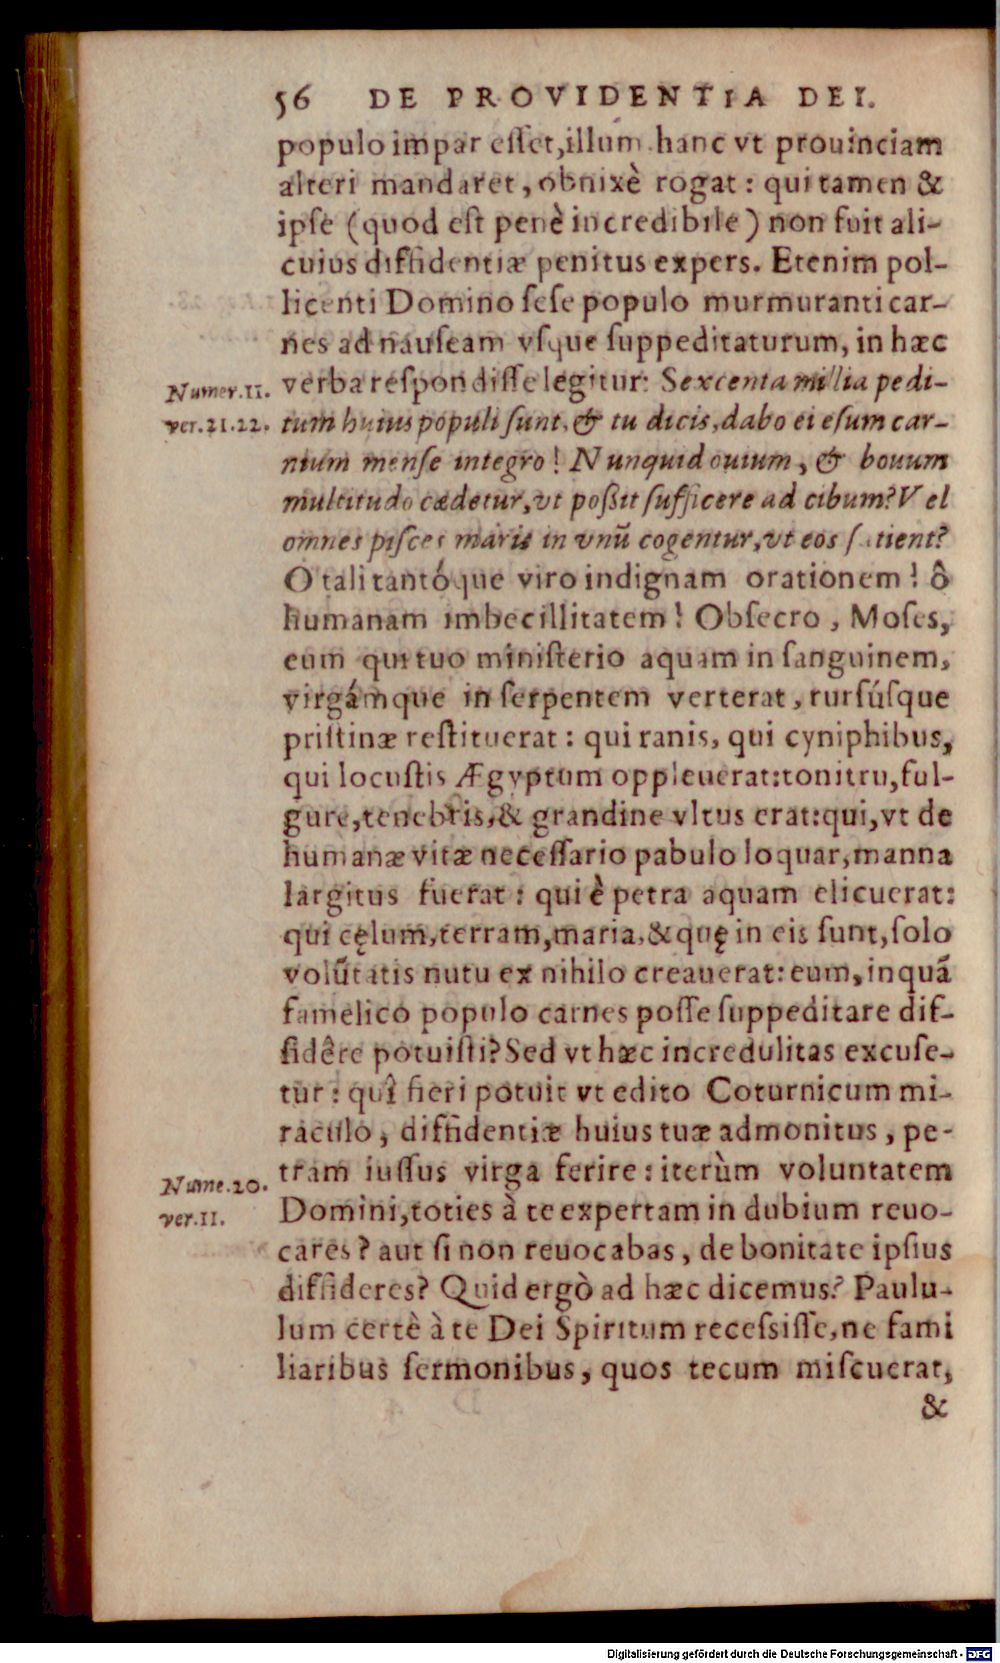 56 DE PROVIDENTIA DEI.
populo impar eſſet, illum hanc vt prouinciam
alteri mandaret, obnixè rogat : qui tamen &
ipſe (quod eſt penè incredibile) non fuit ali-
cuius diffidentiæ penitus expers. Etenim pol-
licenti Domino ſeſe populo murmuranti car-
nes ad nauſeam vſque ſuppeditaturum, in hæc
Numer.11. verba reſpondiſſe legitur: Sexcenta millia pedi-
ver.21.22. tum huius populi ſunt, & tu dicis, dabo ei eſum car-
nium menſe integro! Nunquid ouium, & bouum
multitudo cædetur, vt poßit ſufficere ad cibum? Vel
omnes piſces maris in vnũ cogentur, vt eos ſatient?
O tali tantóque viro indignam orationem! ô
humanam imbecillitatem! Obſecro, Moſes,
eum qui tuo miniſterio aquam in ſanguinem,
virgámque in ſerpentem verterat, rurſúſque
priſtinæ reſtituerat : qui ranis, qui cyniphibus,
qui locuſtis Ægyptum oppleuerat: tonitru, ful-
gure, tenebris, & grandine vltus erat: qui, vt de
humanæ vitæ neceſſario pabulo loquar, manna
largitus fuerat : qui è petra aquam elicuerat:
qui cęlum, terram, maria, & quę in eis ſunt, ſolo
volũtatis nutu ex nihilo creauerat: eum, inquã
famelico populo carnes poſſe ſuppeditare dif-
fidêre potuiſti? Sed vt hæc incredulitas excuſe-
tur : quî fieri potuit vt edito Coturnicum mi-
raculo, diffidentiæ huius tuæ admonitus, pe-
Nume.20. tram iuſſus virga ferire : iterùm voluntatem
ver.11. Domini, toties à te expertam in dubium reuo-
cares? aut ſi non reuocabas, de bonitate ipſius
diffideres? Quid ergò ad hæc dicemus? Paulu-
lum certè à te Dei Spiritum receſsiſſe, ne fami
liaribus ſermonibus, quos tecum miſcuerat,
&
Digitalisierung gefördert durch die Deutsche Forschungsgemeinschaft - DFG